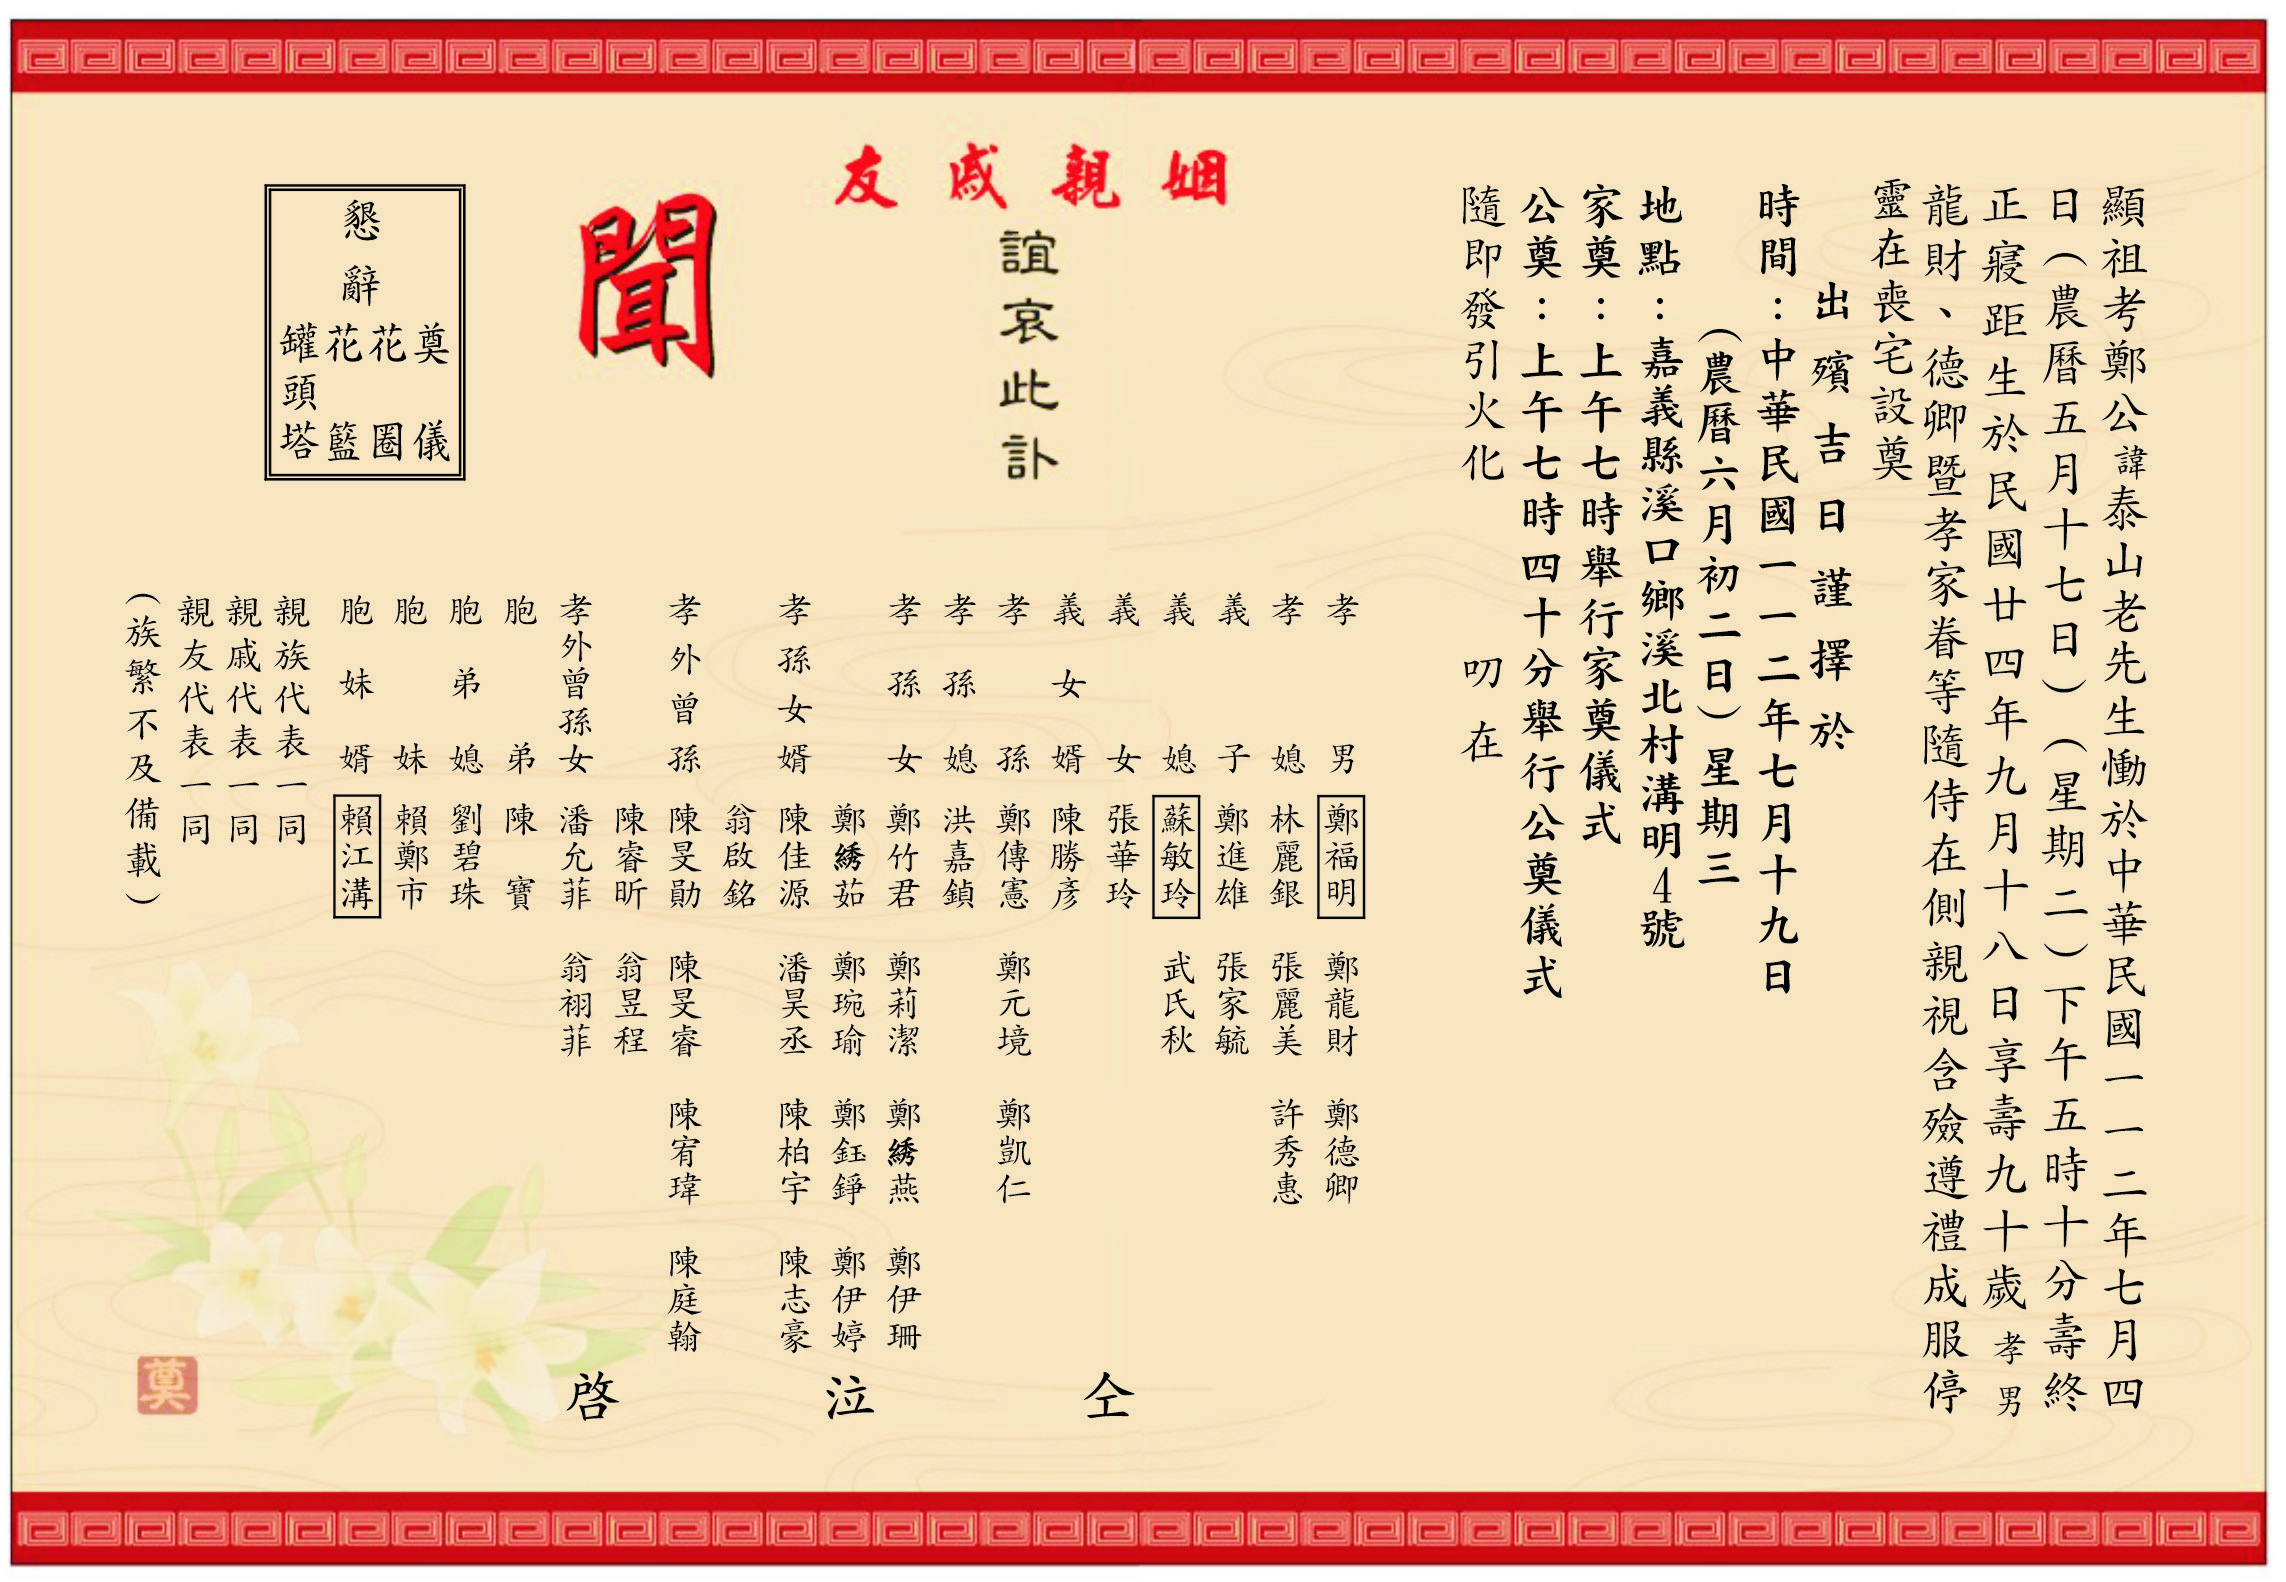 顯祖考鄭公諱泰山老先生慟於中華民國一一二年七月四
日（農曆五月十七日）（星期二）下午五時十分壽終
正寢距生於民國廿四年九月十八日享壽九十歲孝男
龍財、德卿暨孝家眷等隨侍在側親視含殮遵禮成服停
靈在喪宅設奠
出殯吉日謹擇於
時間：中華民國一一二年七月十九日
（農曆六月初二日）星期三
地點：嘉義縣溪口鄉溪北村溝明4號
家奠：上午七時舉行家奠儀式
公奠：上午七時四十分舉行公奠儀式
隨即發引火化 叨在
姻親戚友
誼哀此訃
聞
懇辭
奠儀
花圈
花籃
罐頭塔
孝男 鄭福明 鄭龍財 鄭德卿
孝媳 林麗銀 張麗美 許秀惠
義子 鄭進雄 張家毓
義媳 蘇敏玲 武氏秋
義女 張華玲
義女婿 陳勝彥
孝孫 鄭傳憲 鄭元境 鄭凱仁
孝孫媳 洪嘉鎮
孝孫女 鄭竹君 鄭莉潔 鄭綉燕 鄭伊珊
鄭綉茹 鄭琬瑜 鄭鈺錚 鄭伊婷
孝孫女婿 陳佳源 潘昊丞 陳柏宇 陳志豪
翁啟銘
孝外曾孫 陳旻勛 陳旻睿 陳宥瑋 陳庭翰
陳睿昕 翁昱程
孝外曾孫女 潘允菲 翁栩菲
胞弟 陳寶
胞弟媳 劉碧珠
胞妹 賴鄭市
胞妹婿 賴江溝
親族代表一同
親戚代表一同
親友代表一同
（族繁不及備載）
仝泣啓
奠